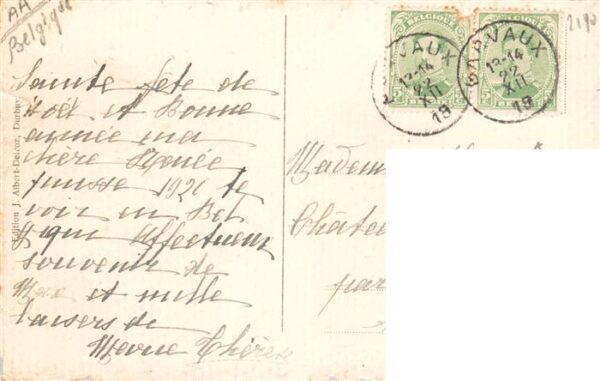 AA
Belgique
2190
Sainte fête de
Noël et Bonne
année ma
chère Renée
puisse 1920 te
voir en Bel
gique Affectueux
souvenir de
et mille
baisers de
Marie Thérèse
Edition J. Albert-Delcoz, Durbuy
BELGIQUE
5
5
BELGIQUE
5
BARVAUX
12-14
22
XII
19
BARVAUX
12-14
22
XII
19
Madem
Château
par